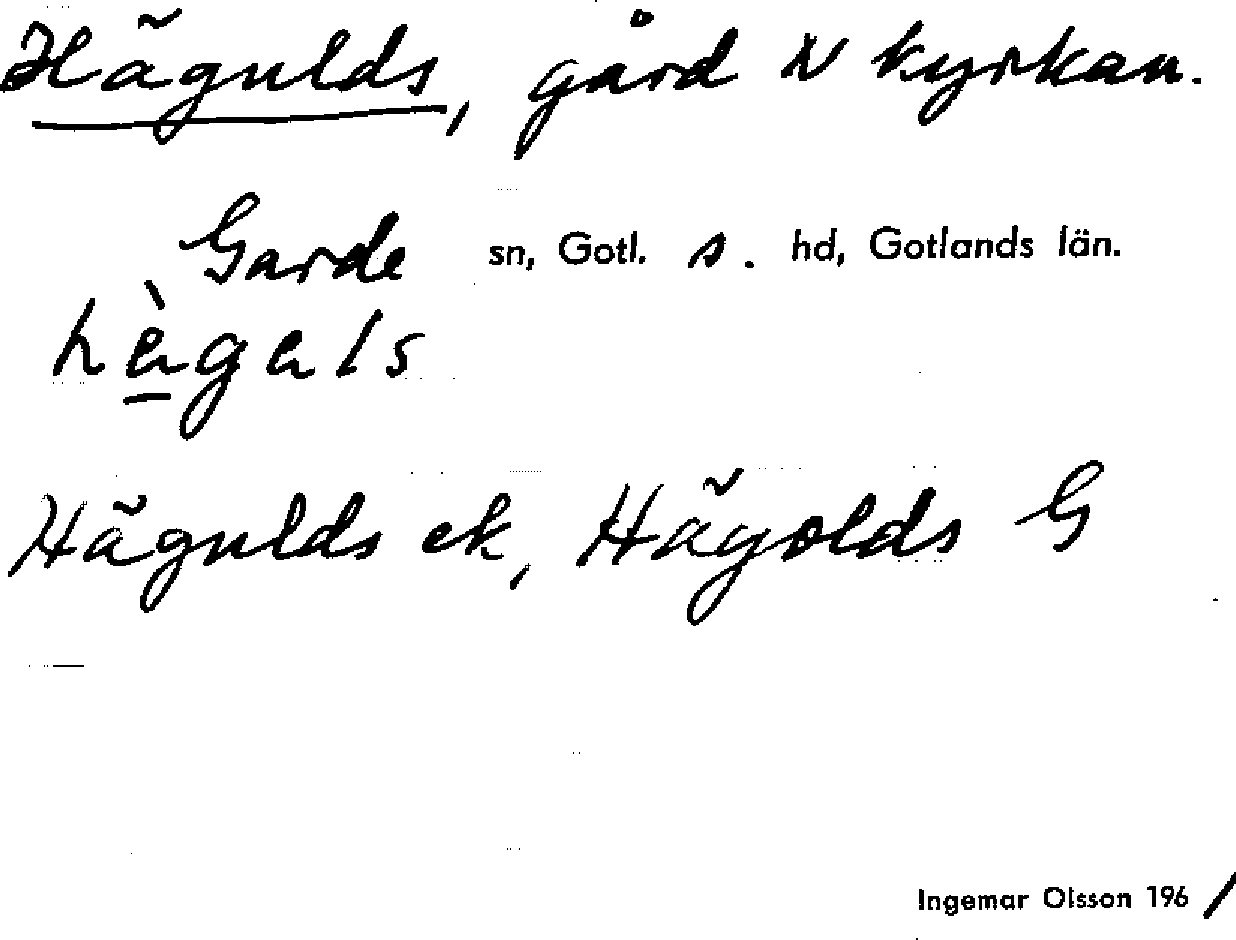 Hägulds, gård N kyrkan.
Garde sn, Gotl. s. hd, Gotlands län.
hàgals
Hägulds ek, Hägolds G
Ingemar Olsson 1961